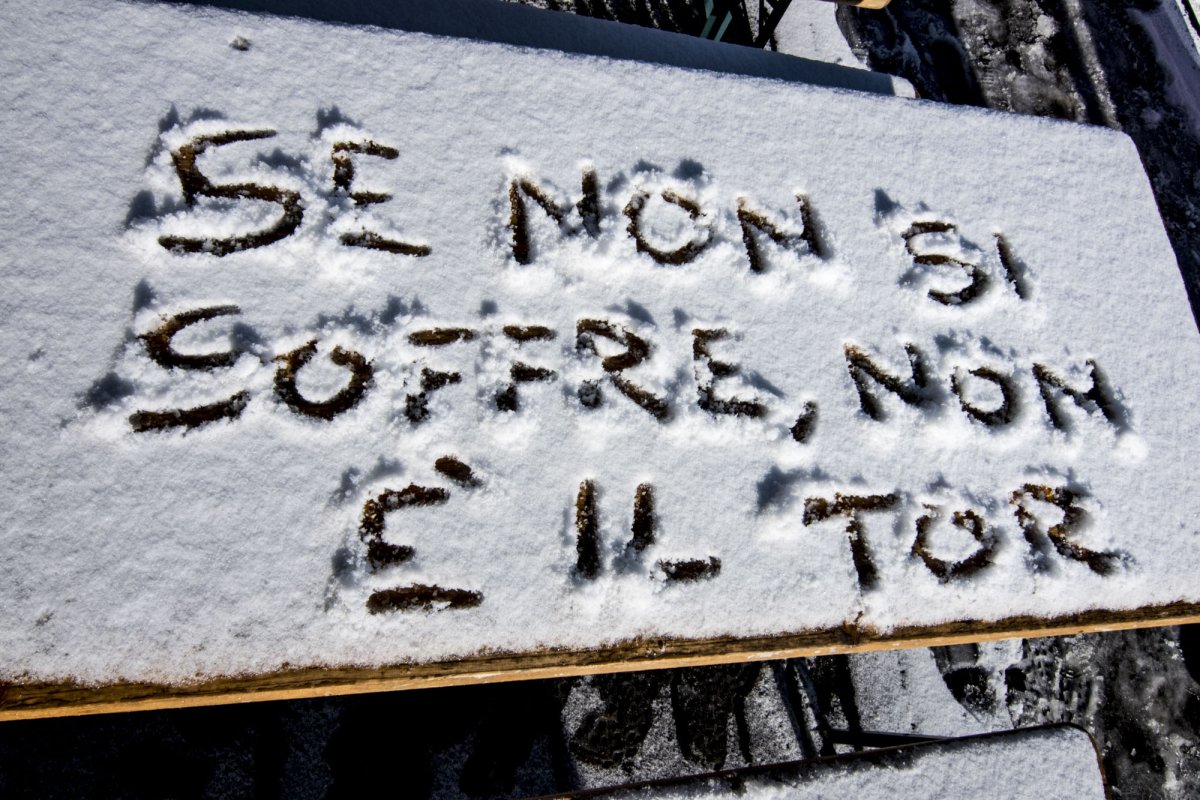 SE NON SI
SOFFRE, NON
È IL TOR